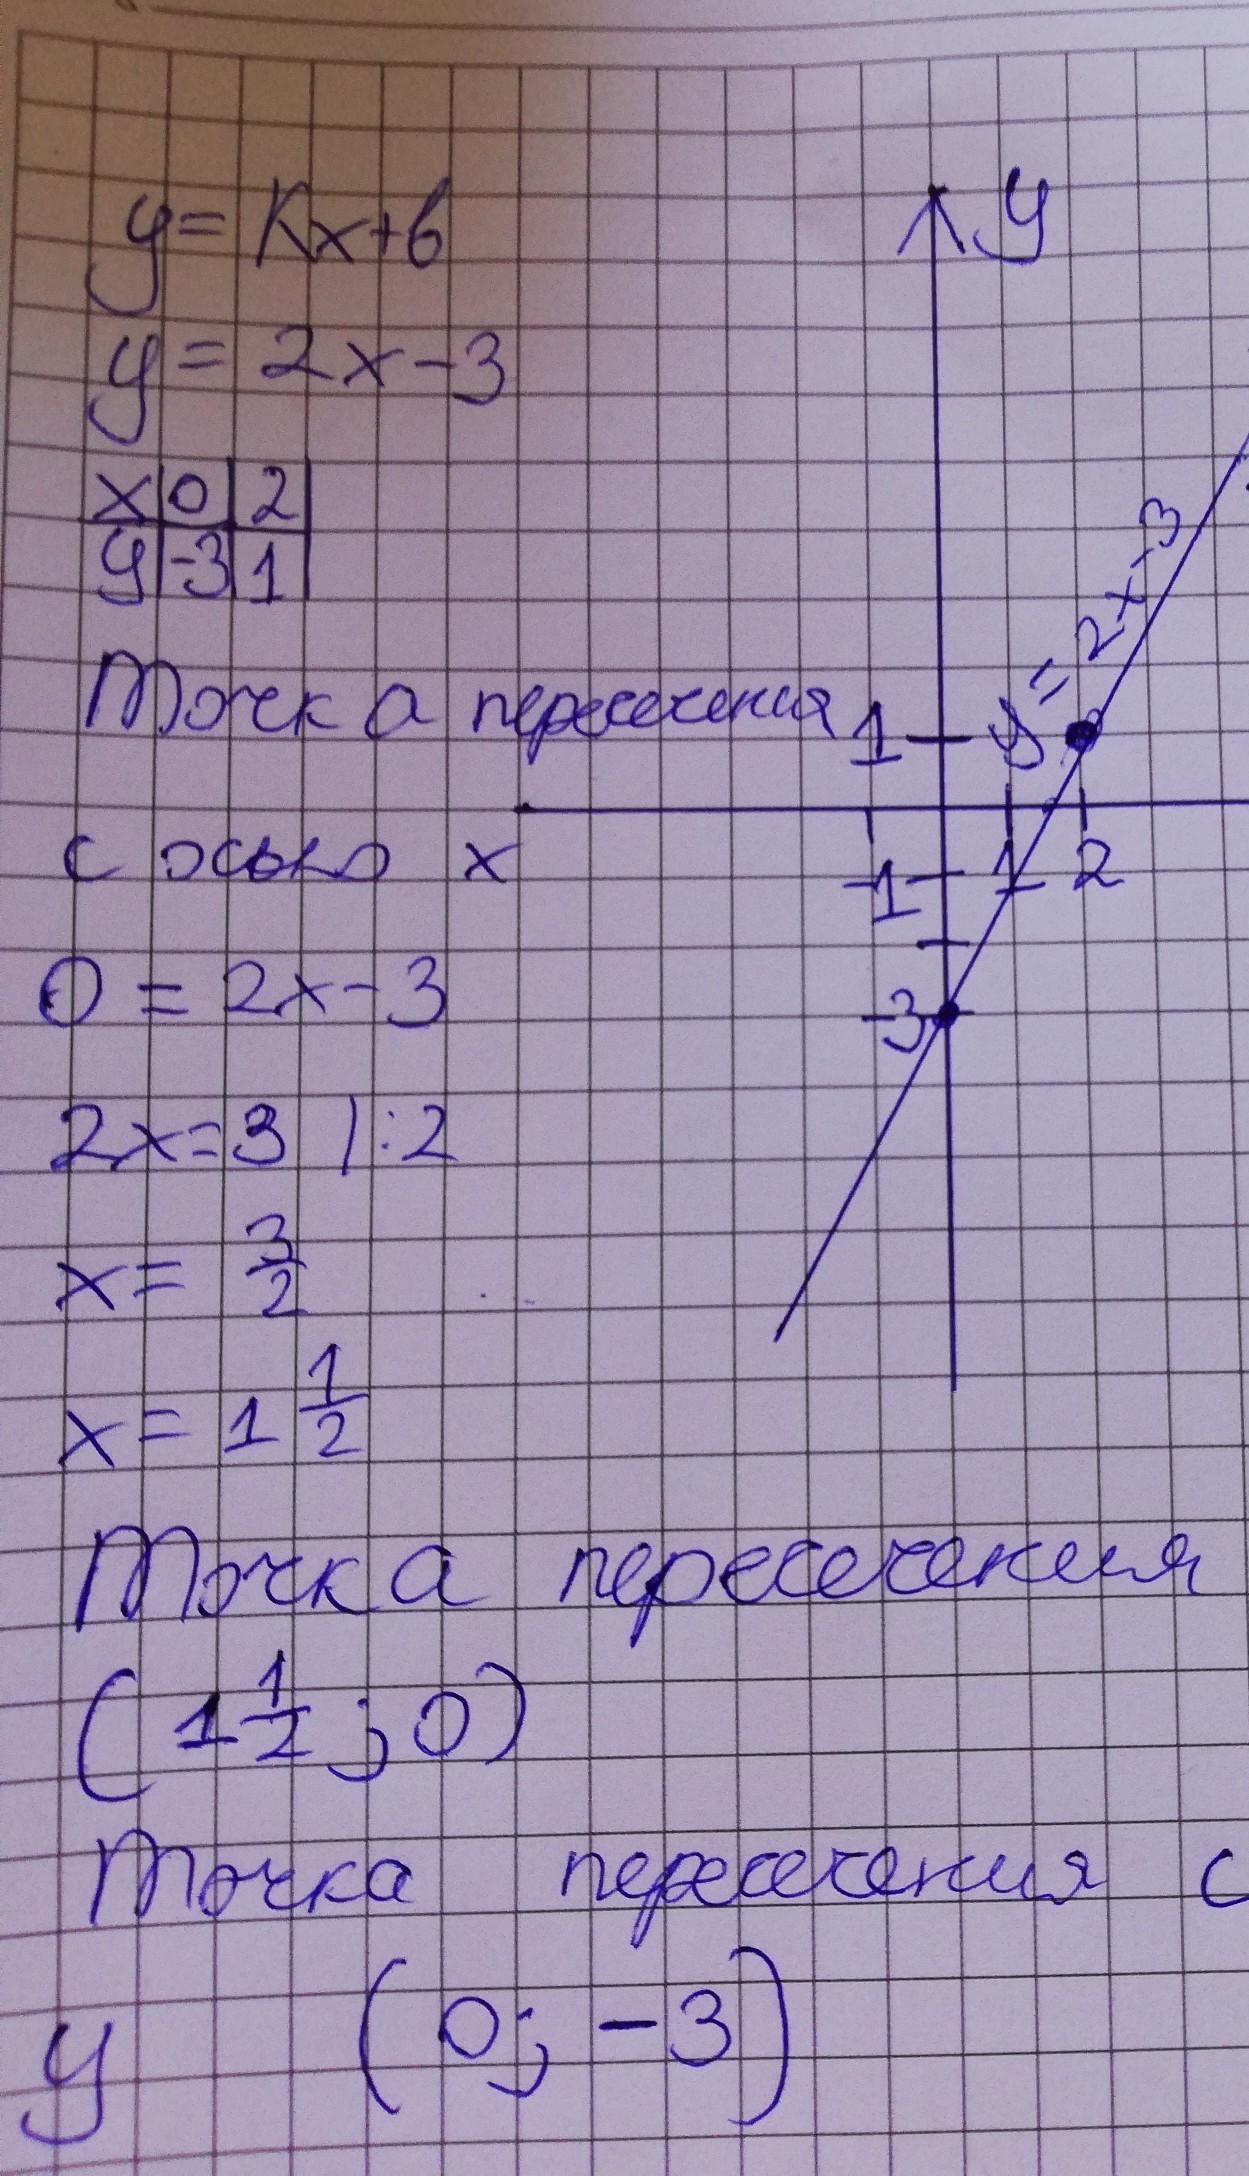 y = Kx+b
y = 2x-3
x 0 2
y -3 1
Точка пересечения
с осью x
0 = 2x-3
2x=3 |:2
x = 3/2
x = 1 1/2
Точка пересечения
(1 1/2 ; 0)
Точка пересечения с
y (0; -3)
y
y = 2x-3
1
-1 1 2
-3